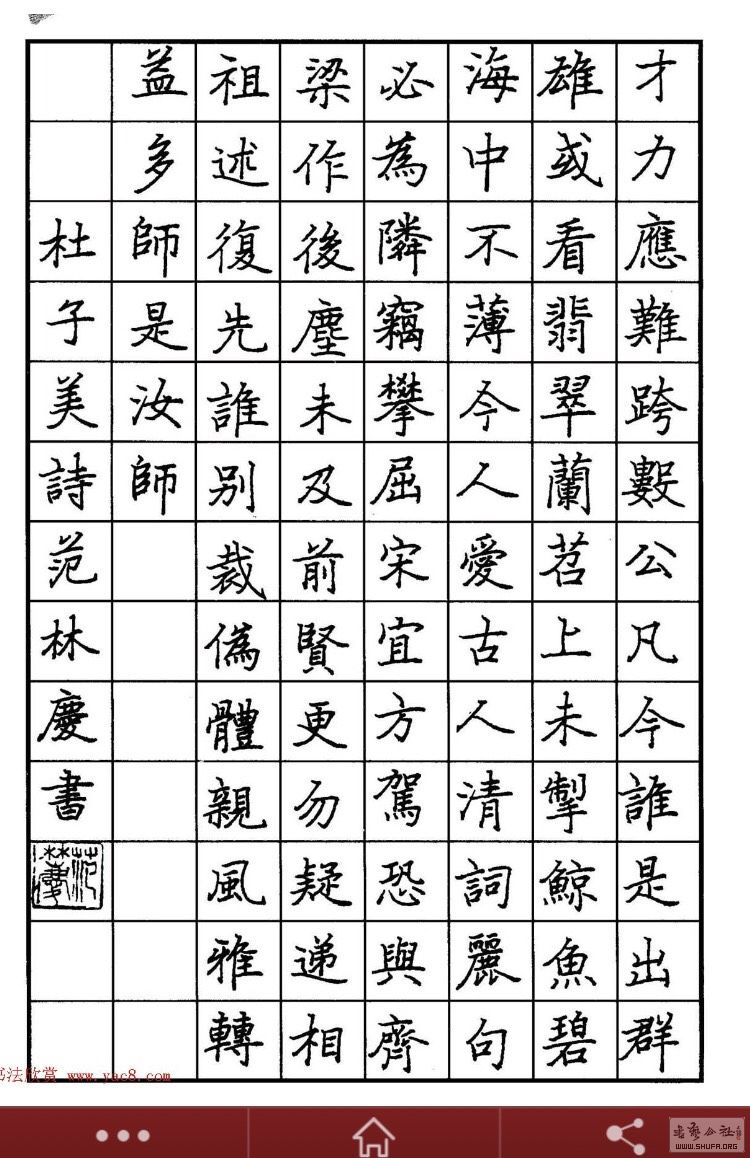 才力應難跨數公凡今誰是出群
雄或看翡翠蘭苕上未掣鯨魚碧
海中不薄今人愛古人清詞麗句
必為隣竊攀屈宋宜方駕恐與齊
梁作後塵未及前賢更勿疑递相
祖述復先誰別裁偽體親風雅轉
益多師是汝師
杜子美詩范林慶書
法欣赏 www.yac8.com
WWW.SHUFA.ORG